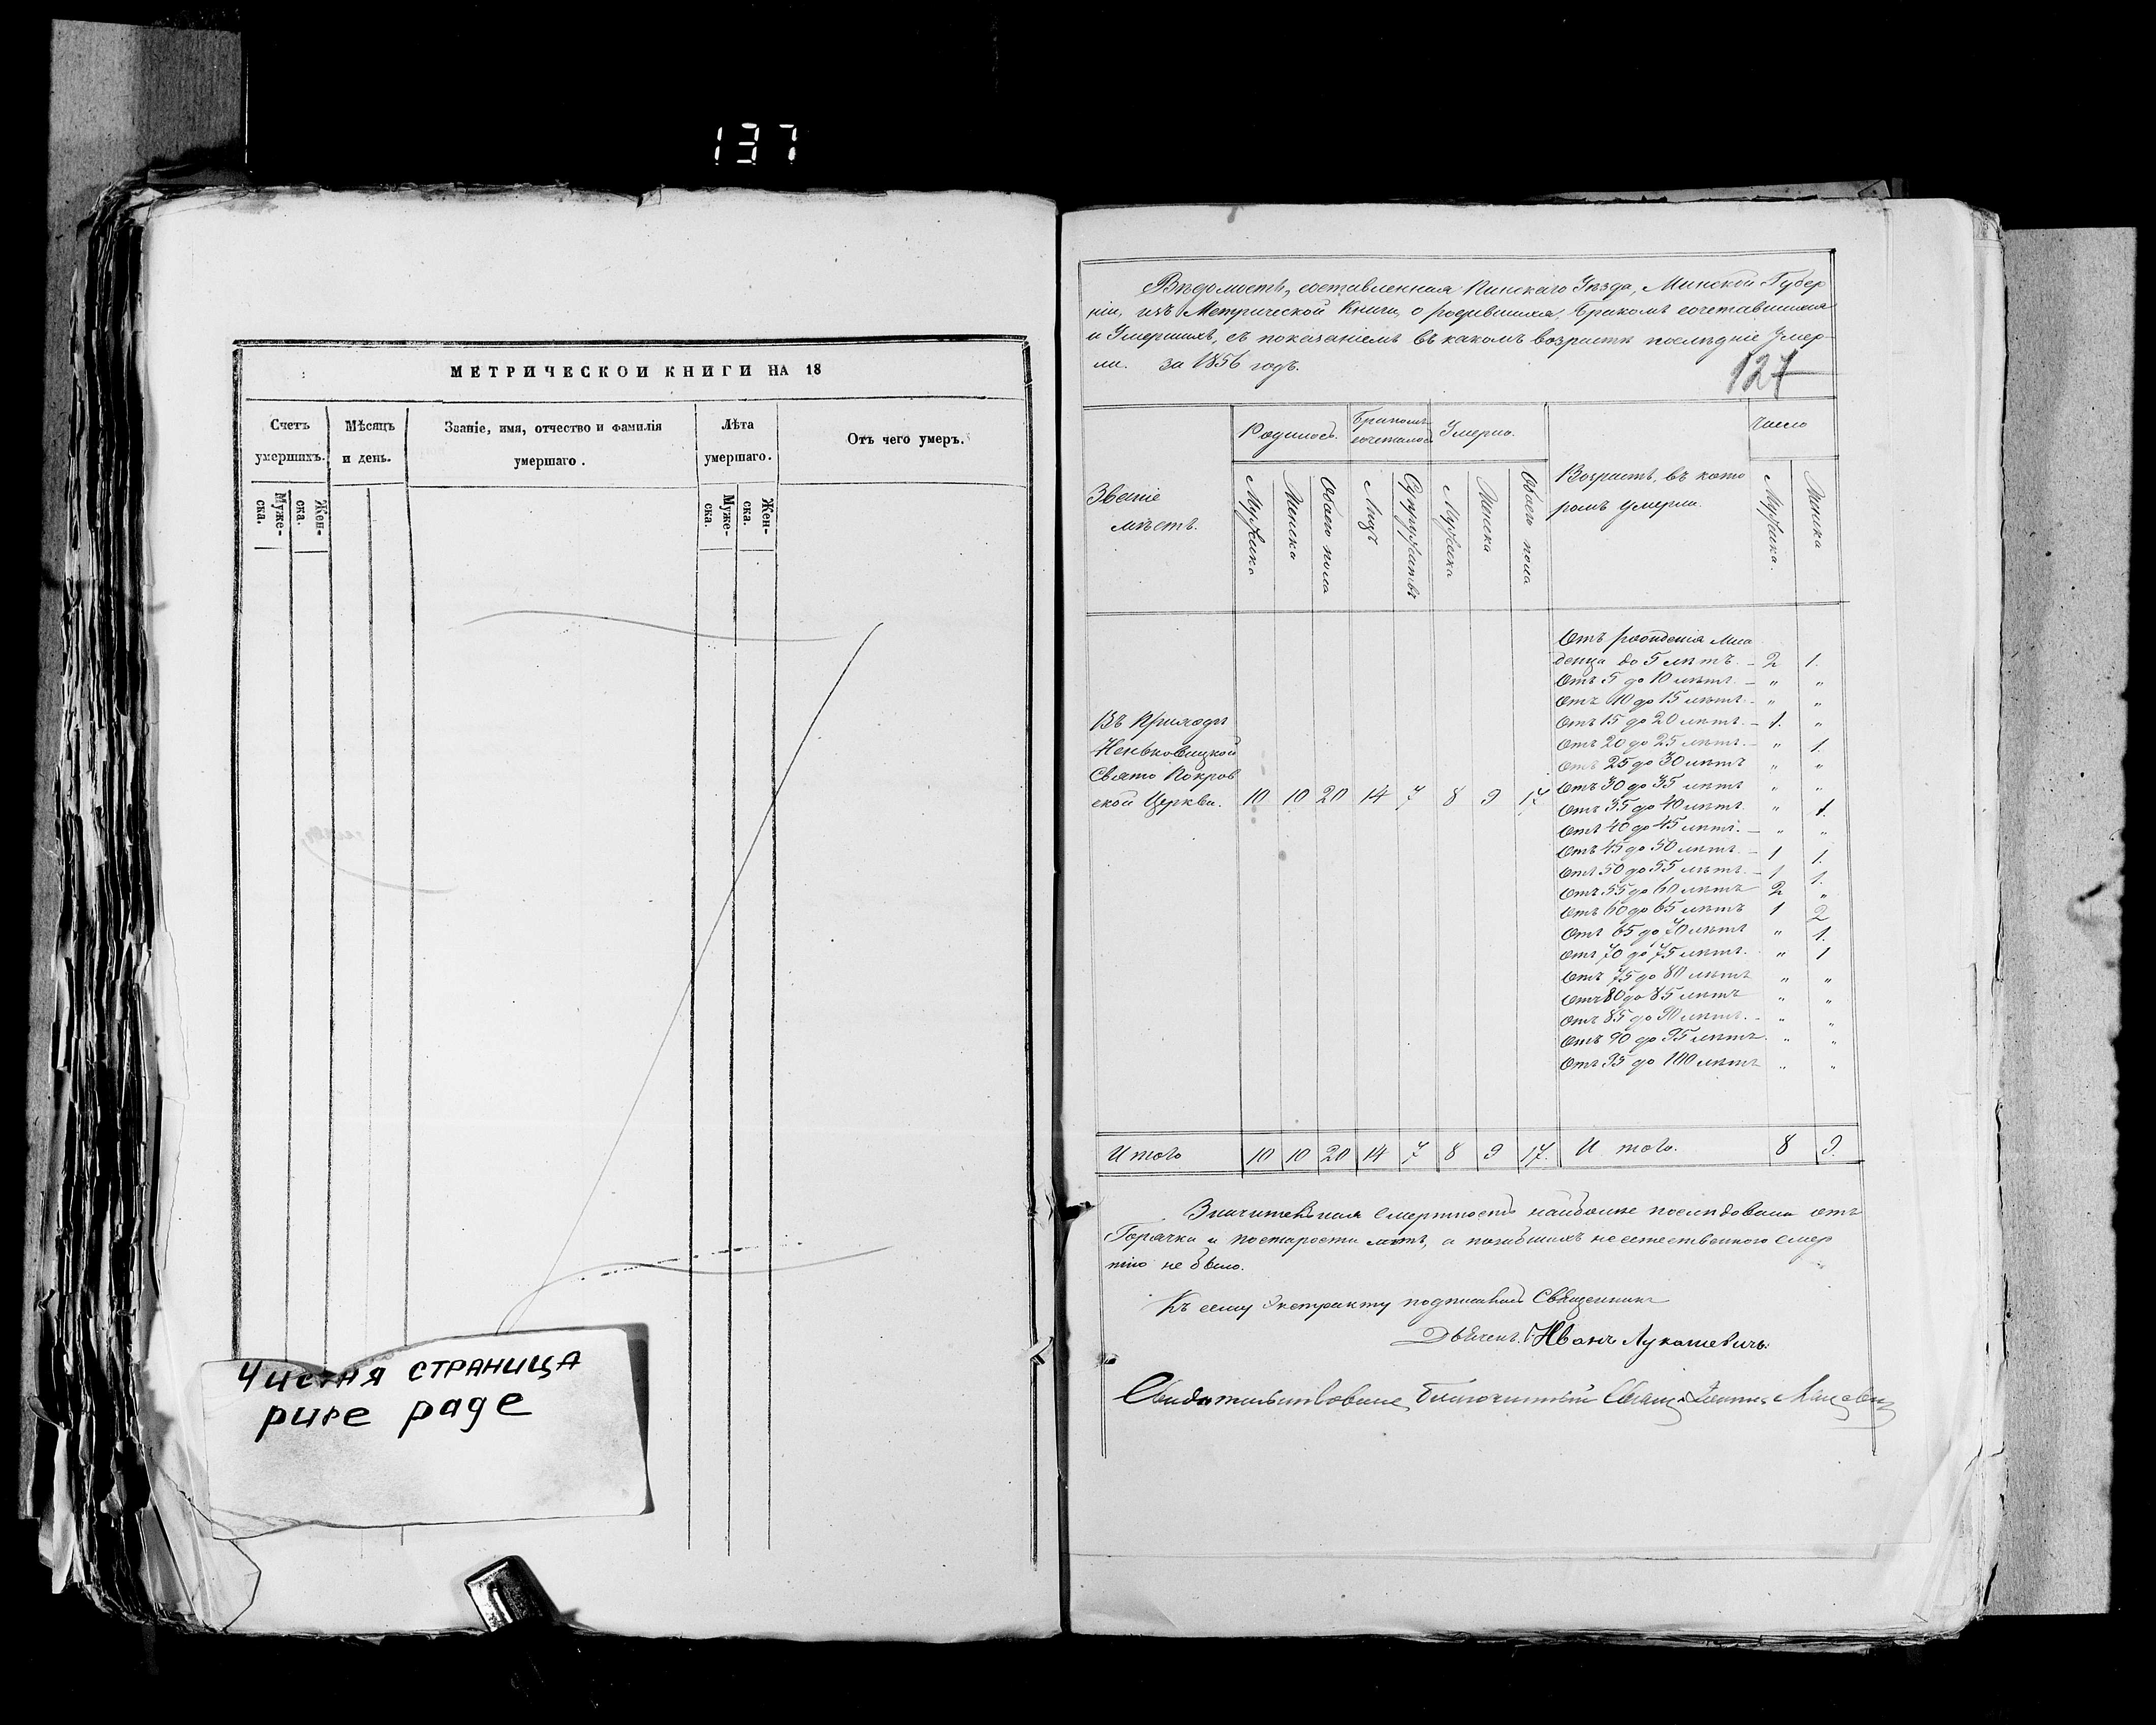 137
МЕТРИЧЕСКОЙ КНИГИ НА 18
Счетъ умершихъ.
Мѣсяцъ и день.
Званіе, имя, отчество и фамилія умершаго.
Лѣта умершаго.
Отъ чего умеръ.
Мужеска.
Женска.
Мужеска.
Женска.
Чистая страница
pure page
Вѣдомость, составленная Пинскаго Уѣзда, Минской Губер
ніи, изъ Метрической Книги, о родившихся, Бракомъ сочетавшихся
и Умершихъ, съ показаніемъ въ какомъ возрастѣ послѣдніе Умер
ли. за 1856 годъ.
127
Званіе мѣстъ.
Родилось.
Бракомъ сочеталось
Умерло.
Возрастъ, въ кото
ромъ умерли.
Число
Мужска
Женска
Обоего пола
Лицъ
Супружествъ
Мужска
Женска
Обоего пола
Мужска.
Женска
Въ Приходѣ
Неньковицкой
Свято Покров
ской Церкви. 10 10 20 14 7 8 9 17
Отъ рожденія Мла
денца до 5 лѣтъ. – 2 1.
Отъ 5 до 10 лѣтъ. – " "
Отъ 10 до 15 лѣтъ. – " "
Отъ 15 до 20 лѣтъ. – 1. "
Отъ 20 до 25 лѣтъ. – " 1.
Отъ 25 до 30 лѣтъ " "
Отъ 30 до 35 лѣтъ " "
Отъ 35 до 40 лѣтъ. " 1.
Отъ 40 до 45 лѣтъ. – " "
Отъ 45 до 50 лѣтъ. – 1 1.
Отъ 50 до 55 лѣтъ. – 1 1.
Отъ 55 до 60 лѣтъ 2 "
Отъ 60 до 65 лѣтъ 1 2
Отъ 65 до 70 лѣтъ " 1.
Отъ 70 до 75 лѣтъ. " 1
Отъ 75 до 80 лѣтъ " "
Отъ 80 до 85 лѣтъ " "
Отъ 85 до 90 лѣтъ. – " "
Отъ 90 до 95 лѣтъ. " "
Отъ 95 до 100 лѣтъ " "
Итого 10 10 20 14 7 8 9 17. Итого. 8 9.
Значительная Смертность наиболѣе послѣдовала отъ
Горячки и постарости лѣтъ, а погибшихъ неестественною смер
тію не было.
Къ сему Экстракту подписались Священникъ
Иванъ Лукашевичъ.
Свидѣтельствовалъ, благочинный Свящ.